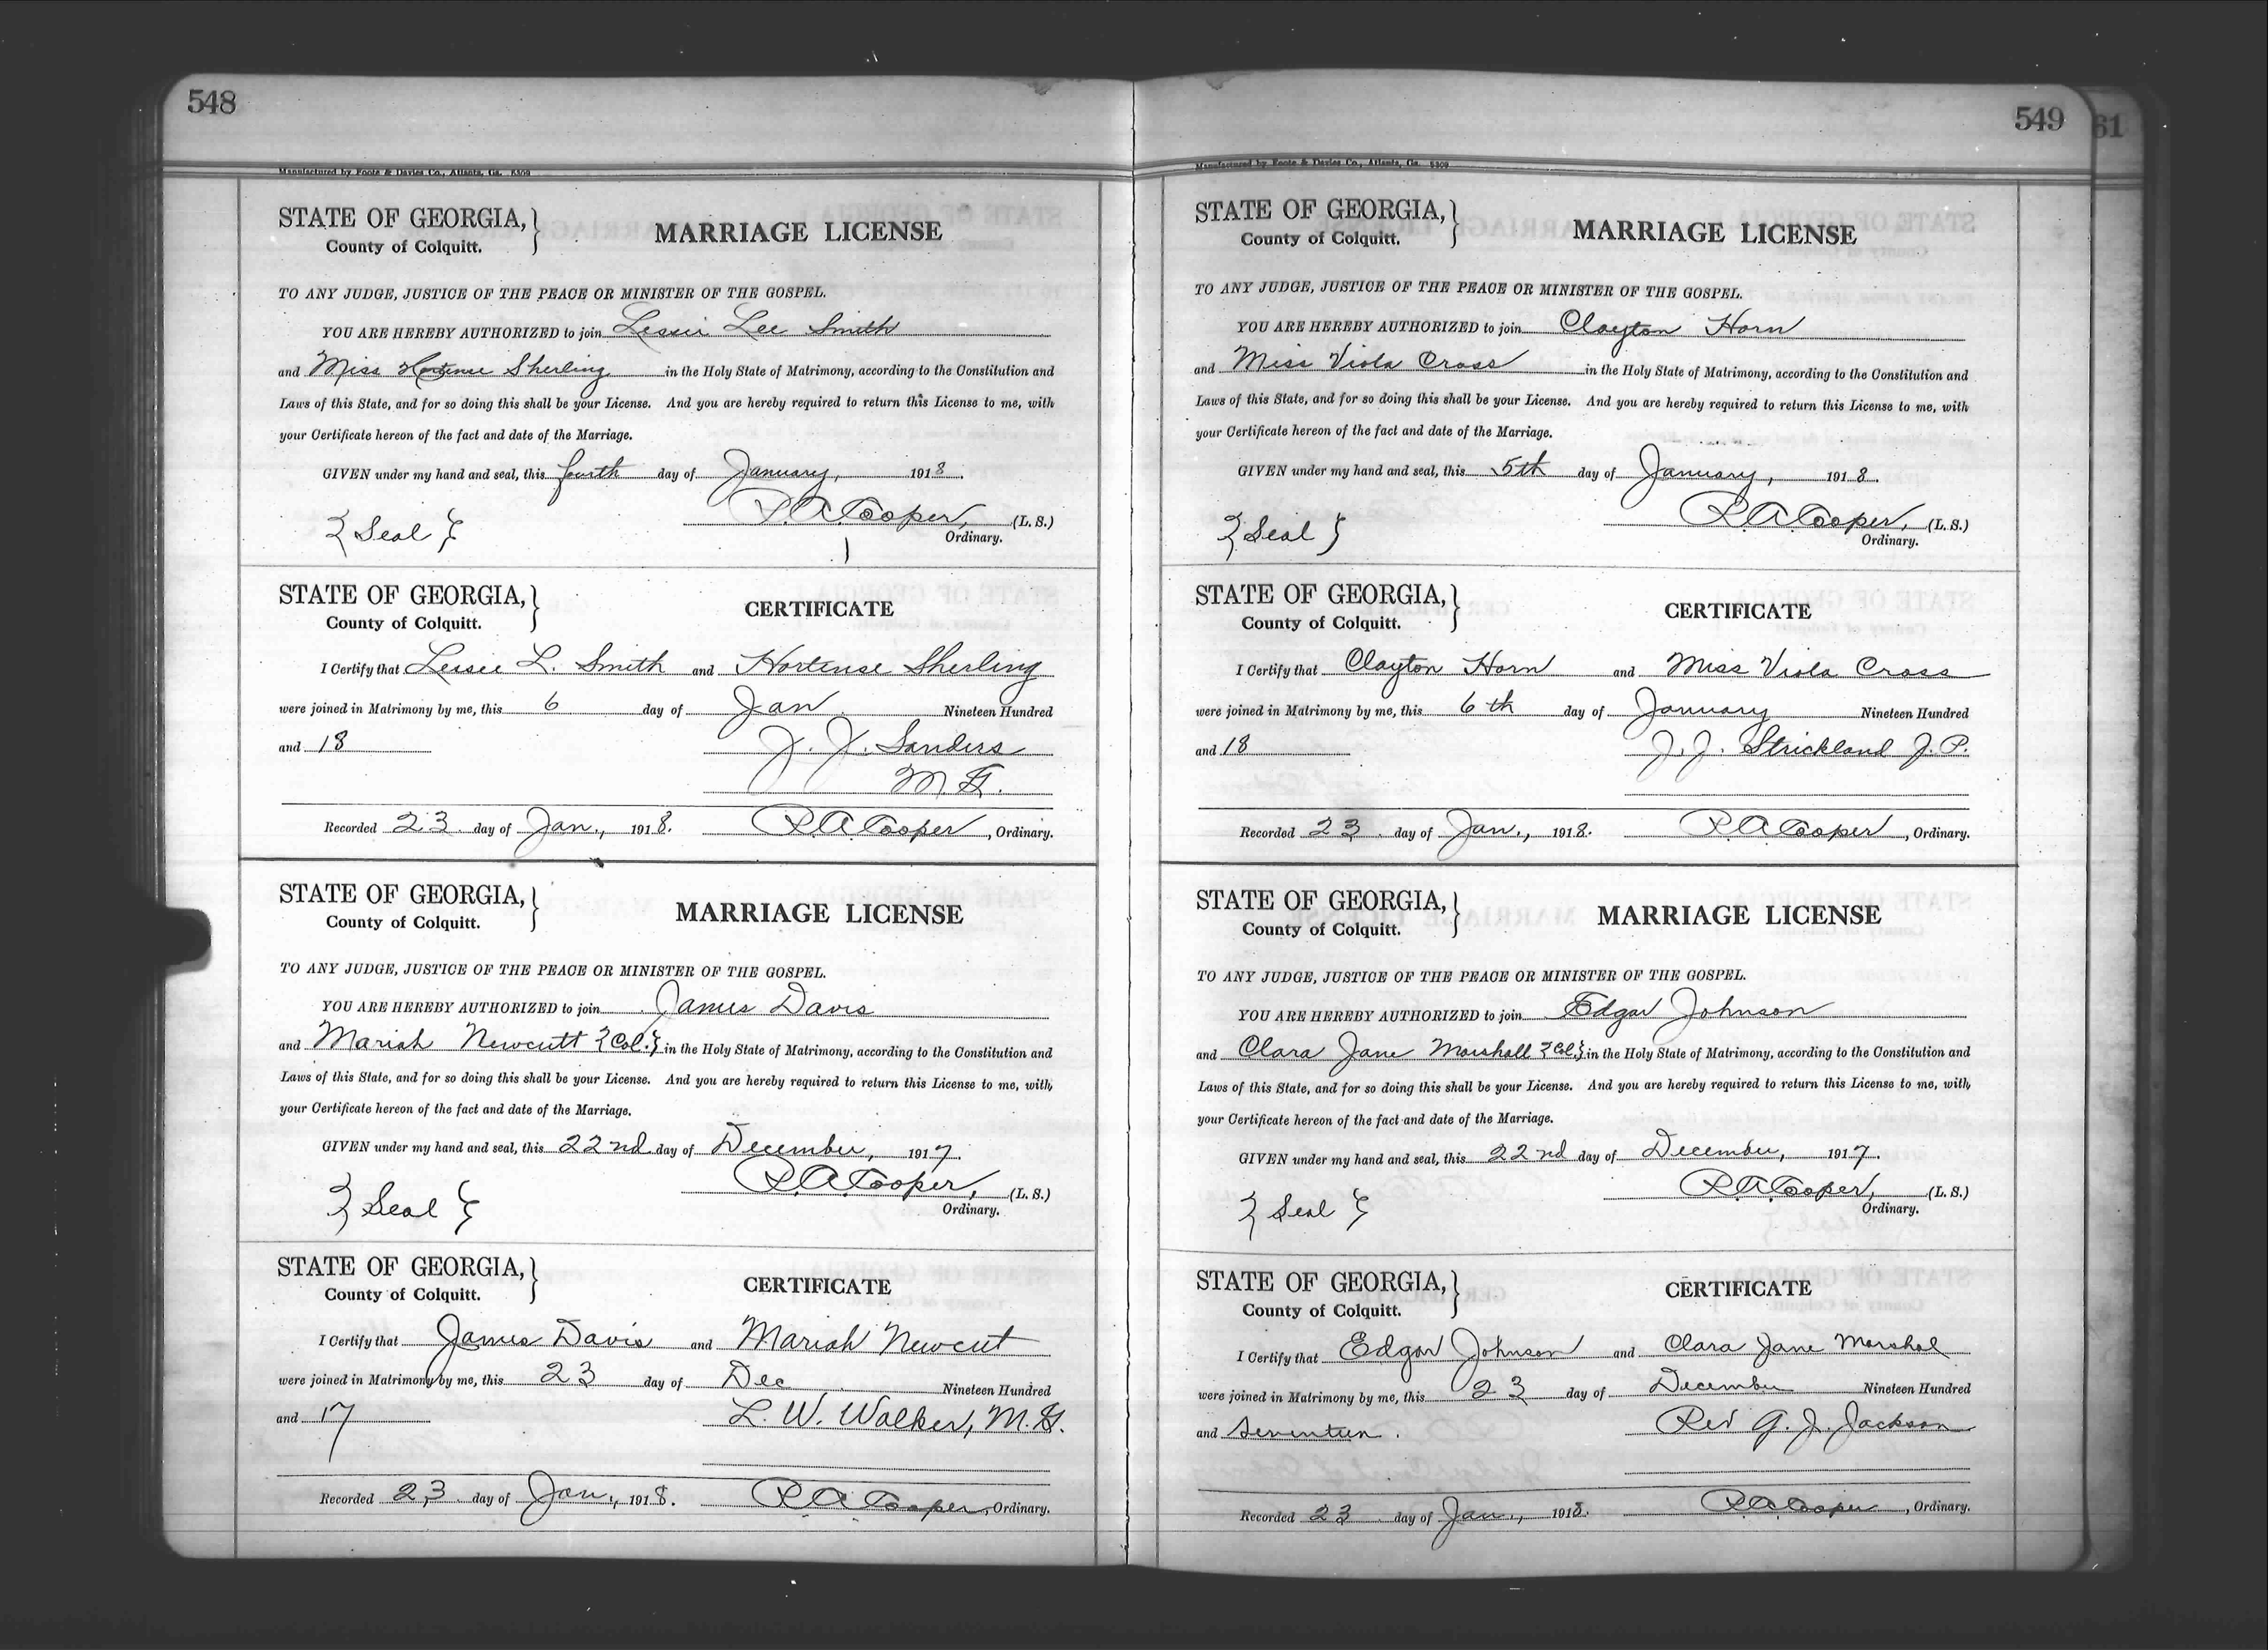 548
Manufactured by Foote & Davies Co., Atlanta, Ga. 5309
STATE OF GEORGIA,
County of Colquitt.
MARRIAGE LICENSE
TO ANY JUDGE, JUSTICE OF THE PEACE OR MINISTER OF THE GOSPEL.
YOU ARE HEREBY AUTHORIZED to join Lessie Lee Smith
and Miss Hortense Sherling in the Holy State of Matrimony, according to the Constitution and
Laws of this State, and for so doing this shall be your License. And you are hereby required to return this License to me, with
your Certificate hereon of the fact and date of the Marriage.
GIVEN under my hand and seal, this fourth day of January, 1918.
R. A. Cooper, (L. S.)
{Seal}
Ordinary.
STATE OF GEORGIA,
County of Colquitt.
CERTIFICATE
I Certify that Lessie L. Smith and Hortense Sherling
were joined in Matrimony by me, this 6 day of Jan Nineteen Hundred
and 18
J. J. Sanders
M. G.
Recorded 23 day of Jan., 1918. R. A. Cooper, Ordinary.
STATE OF GEORGIA,
County of Colquitt.
MARRIAGE LICENSE
TO ANY JUDGE, JUSTICE OF THE PEACE OR MINISTER OF THE GOSPEL.
YOU ARE HEREBY AUTHORIZED to join James Davis
and Mariah Newcutt {Col.} in the Holy State of Matrimony, according to the Constitution and
Laws of this State, and for so doing this shall be your License. And you are hereby required to return this License to me, with
your Certificate hereon of the fact and date of the Marriage.
GIVEN under my hand and seal, this 22nd day of December, 1917.
R. A. Cooper, (L. S.)
{Seal}
Ordinary.
STATE OF GEORGIA,
County of Colquitt.
CERTIFICATE
I Certify that James Davis and Mariah Newcut
were joined in Matrimony by me, this 23 day of Dec Nineteen Hundred
and 17
L. W. Walker, M. G.
Recorded 23 day of Jan., 1918. R. A. Cooper, Ordinary.
549
61
Manufactured by Foote & Davies Co., Atlanta, Ga. 5309
STATE OF GEORGIA,
County of Colquitt.
MARRIAGE LICENSE
TO ANY JUDGE, JUSTICE OF THE PEACE OR MINISTER OF THE GOSPEL.
YOU ARE HEREBY AUTHORIZED to join Clayton Horn
and Miss Viola Cross in the Holy State of Matrimony, according to the Constitution and
Laws of this State, and for so doing this shall be your License. And you are hereby required to return this License to me, with
your Certificate hereon of the fact and date of the Marriage.
GIVEN under my hand and seal, this 5th day of January, 1918.
R. A. Cooper, (L. S.)
{Seal}
Ordinary.
STATE OF GEORGIA,
County of Colquitt.
CERTIFICATE
I Certify that Clayton Horn and Miss Viola Cross
were joined in Matrimony by me, this 6th day of January Nineteen Hundred
and 18
J. J. Strickland J. P.
Recorded 23 day of Jan., 1918. R. A. Cooper, Ordinary.
STATE OF GEORGIA,
County of Colquitt.
MARRIAGE LICENSE
TO ANY JUDGE, JUSTICE OF THE PEACE OR MINISTER OF THE GOSPEL.
YOU ARE HEREBY AUTHORIZED to join Edgar Johnson
and Clara Jane Marshall {Col.} in the Holy State of Matrimony, according to the Constitution and
Laws of this State, and for so doing this shall be your License. And you are hereby required to return this License to me, with
your Certificate hereon of the fact and date of the Marriage.
GIVEN under my hand and seal, this 22nd day of December, 1917.
R. A. Cooper, (L. S.)
{Seal}
Ordinary.
STATE OF GEORGIA,
County of Colquitt.
CERTIFICATE
I Certify that Edgar Johnson and Clara Jane Marshal
were joined in Matrimony by me, this 23 day of December Nineteen Hundred
and Seventeen.
Rev G. J. Jackson
Recorded 23 day of Jan., 1918. R. A. Cooper, Ordinary.